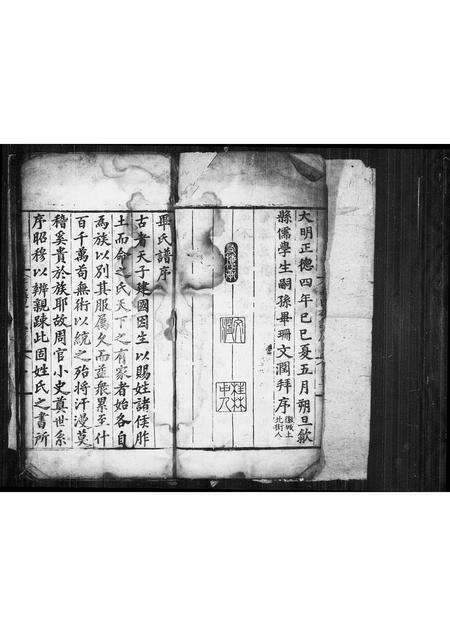 大明正德四年己巳夏五月朔旦歙
縣儒學生嗣孫畢珊文淵拜序
徽城上
北街人
桂林
畢氏譜序
古者天子建國因生以賜姓諸侯胙
土而命之氏天下之有家者始各自
為族以別其服屬久而益衆累至什
百千萬苟無術以統之殆將汗漫莫
稽奚貴於族耶故周官小史奠世系
序昭穆以辨親疎此固姓氏之書所